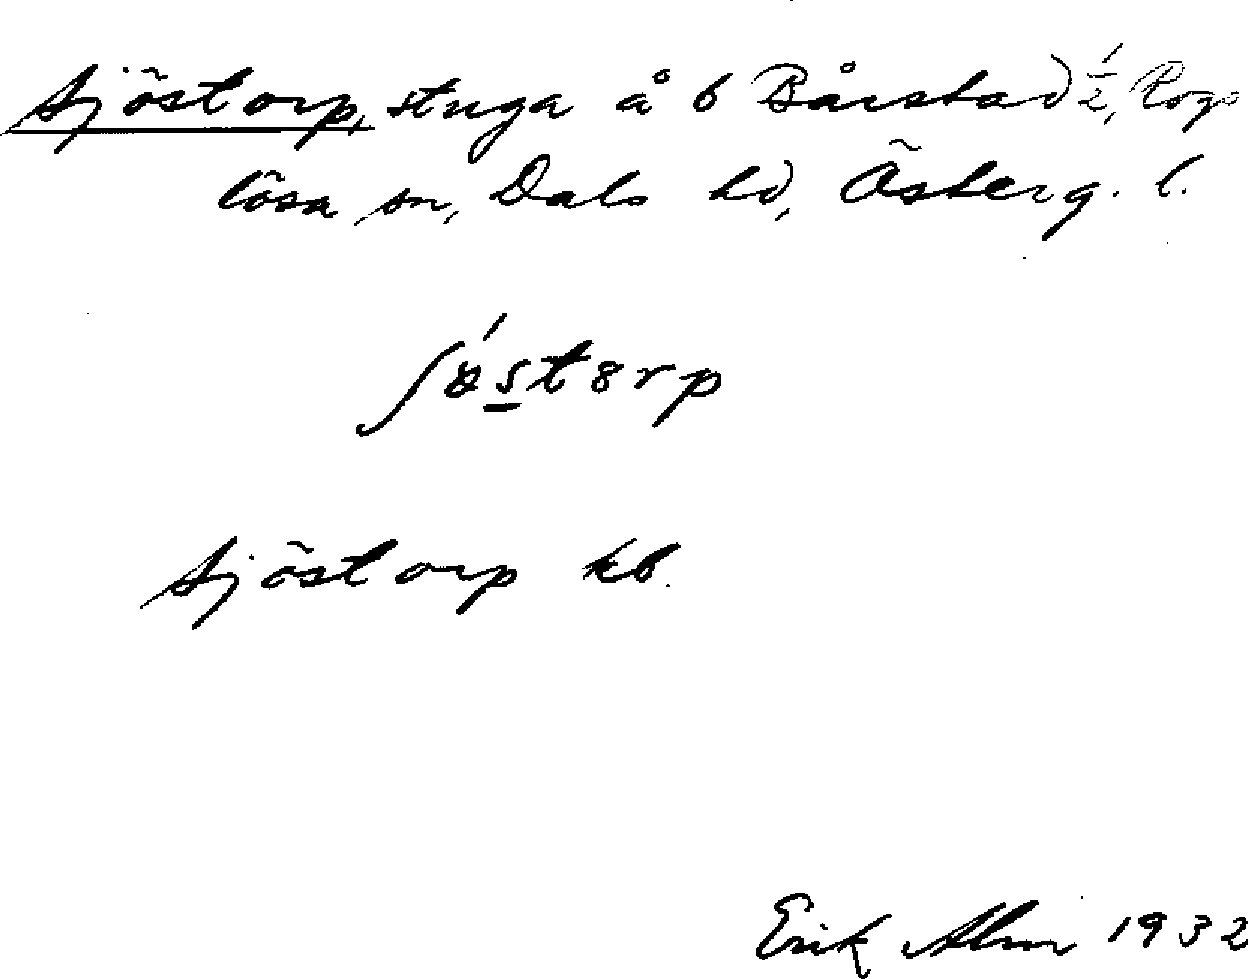 Sjöstorp, stuga å b Bårstad 1/2, Rogs
lösa sn, Dals hd, Österg. l.
ʃö́storp
Sjöstorp kb.
Erik Alm 1932